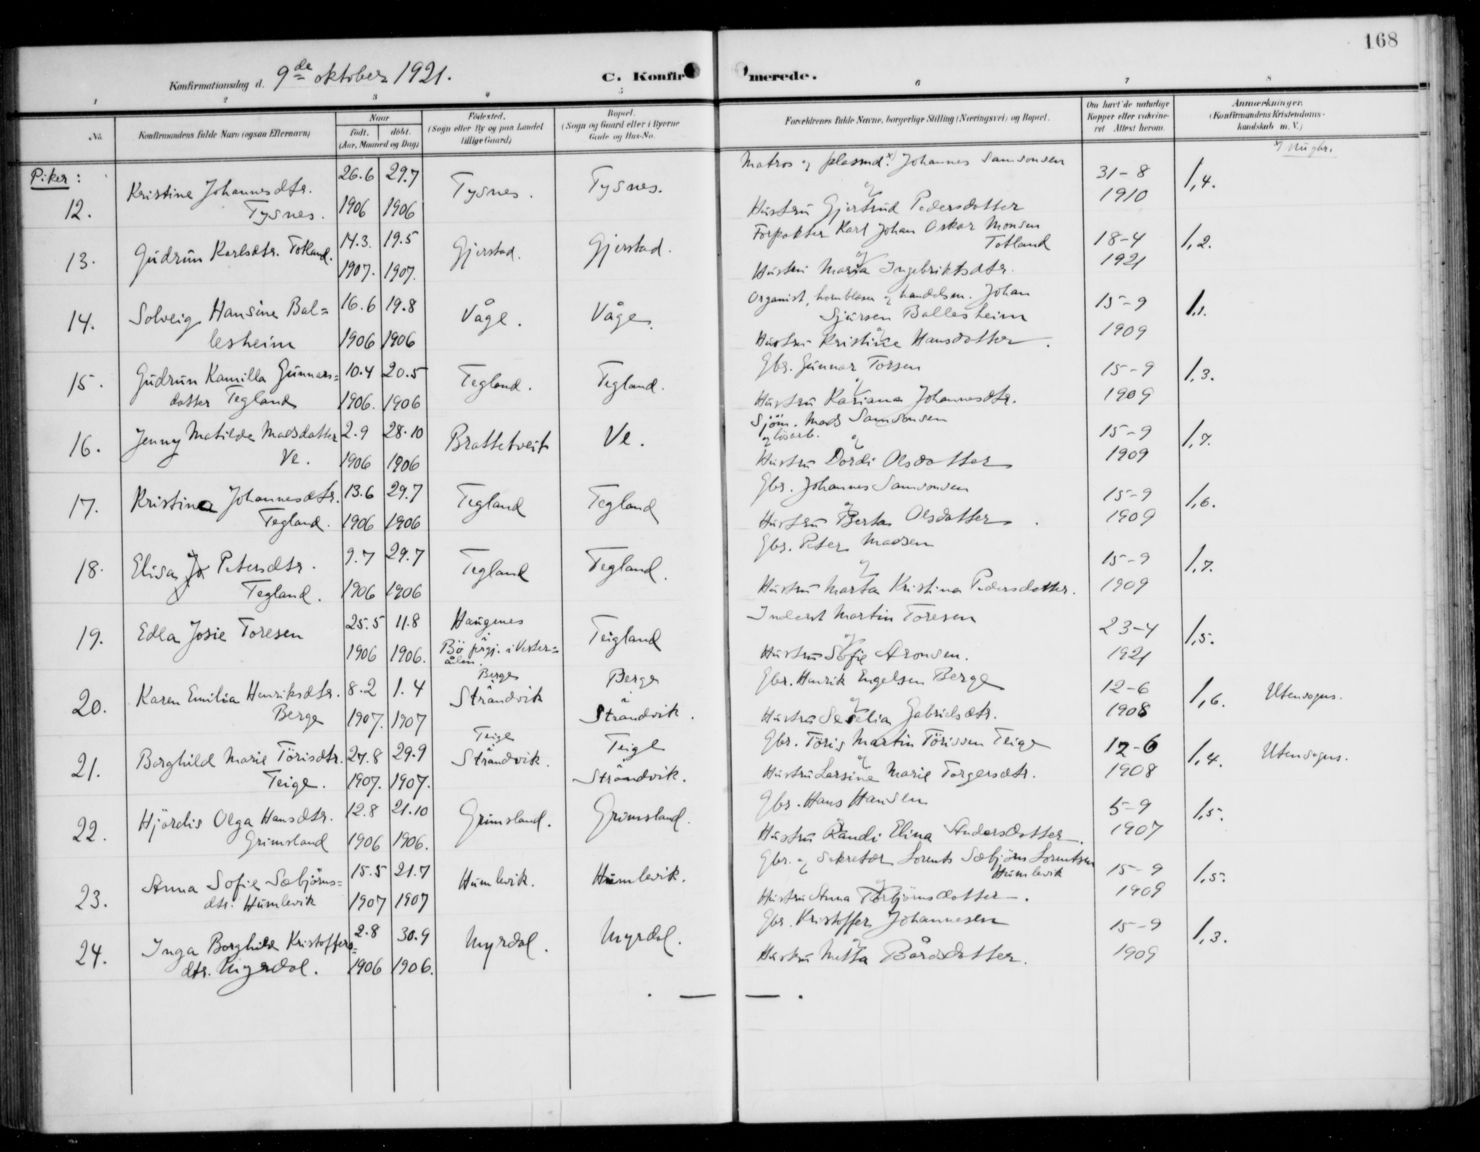 168
Konfirmationsdag d. 9de oktober 1921.
C. Konfirmerede.
1 2 3 4 5 6 7 8
No.
Konfirmandens fulde Navn (ogsaa Efternavn)
Naar
Født. døbt.
(Aar, Maaned og Dag)
Fødested.
(Sogn eller By og paa Landet
tillige Gaard)
Bopæl.
(Sogn og Gaard eller i Byerne
Gade og Hus-No.
Forældrenes fulde Navne, borgerlige Stilling (Næringsvei) og Bopæl.
Om havt de naturlige
Kopper eller vaccine-
ret Attest herom.
Anmærkninger.
(Konfirmandens Kristendoms-
kundskab m. V.)
Piker:
12. Kristine Johannesdtr. Tysnes. 26.6 1906 29.7 1906 Tysnes. Tysnes.
Matros og plassmd. x) Johannes Samsonsen
og
Hustru Gjertrud Pedersdotter
31-8 1910 1,4.
13. Gudrun Karlsdtr. Totland. 14.3. 1907. 19.5 1907. Gjerstad. Gjerstad.
Forpakter Karl Johan Oskar Monsen
Totland
og
Hustru Maria Ingebriktsdtr.
18-4 1921 1,2.
14. Solveig Hansine Bal=
lesheim 16.6 1906 19.8 1906 Våge. Våge.
Organist, hornblåser og handelsm. Johan
Sjursen Ballesheim
og
Hustru Kristine Hansdotter.
15-9 1909 1,1.
15. Gudrun Kamilla Gunnars=
dotter Tegland 10.4 1906. 20.5 1906 Tegland. Tegland.
Gbr. Gunnar Torsen
og
Hustru Kariana Johannesdtr.
15-9 1909 1,3.
16. Jenny Matilde Madsdatter
Ve. 2.9 1906 28.10 1906 Brattetveit Ve.
Sjøm. Mads Samsonsen
og
Hustru Dordi Olsdotter
15-9 1909 1,7.
17. Kristina Johannesdtr.
Tegland. 13.6 1906 29.7 1906 Tegland Tegland
Gbr. Johannes Samsonsen
og
Hustru Berta Olsdotter.
15-9 1909 1,6.
18. Elisa Jo Petersdtr.
Tegland. 9.7 1906 29.7 1906 Tegland Tegland.
Gbr. Peter Madsen
og
Hustru Marta Kristina Pedersdotter.
15-9 1909 1,7.
19. Edla Josie Toresen 25.5 1906 11.8 1906. Haugenes
i
Bø prgj. i Vester=
ålen. Teigland
Inderst Martin Toresen
og
Hustru Sofie Aronsen.
23-4 1921 1,5.
20. Karen Emilia Henriksdtr.
Berge 8.2 1907. 1.4 1907 Berge
Strandvik Berge
i
Strandvik.
Gbr. Henrik Engelsen Berge
og
Hustru Sesilia Gabrielsdtr.
12-6 1908 1,6. Utensogns.
21. Borghild Marie Tørisdtr.
Teige. 27.8 1907. 29.9 1907. Teige
i
Strandvik. Teige
i
Strandvik.
Gbr. Tøris Martin Tørissen Teige
og
Hustru Larsine Marie Torgersdtr.
12-6 1908 1,4. Utensogns.
22. Hjørdis Olga Hansdtr.
Grimsland 12.8 1906 21.10 1906. Grimsland. Grimsland.
Gbr. Hans Hansen
og
Hustru Randi Elina Andersdotter.
5-9 1907 1,5.
23. Anna Sofie Sæbjørns=
dtr. Humlevik 15.5 1907 21.7 1907 Humlevik. Humlevik.
Gbr. og Sekretær Lorents Sæbjørn Lorentsen
Humlevik
og
Hustru Anna Torbjørnsdotter.
15-9 1909 1,5.
24. Inga Borghild Kristoffers=
dtr. Myrdal. 2.8 1906 30.9 1906. Myrdal. Myrdal.
Gbr. Kristoffer Johannesen
og
Hustru Mitta Bårdsdotter.
15-9 1909 1,3.